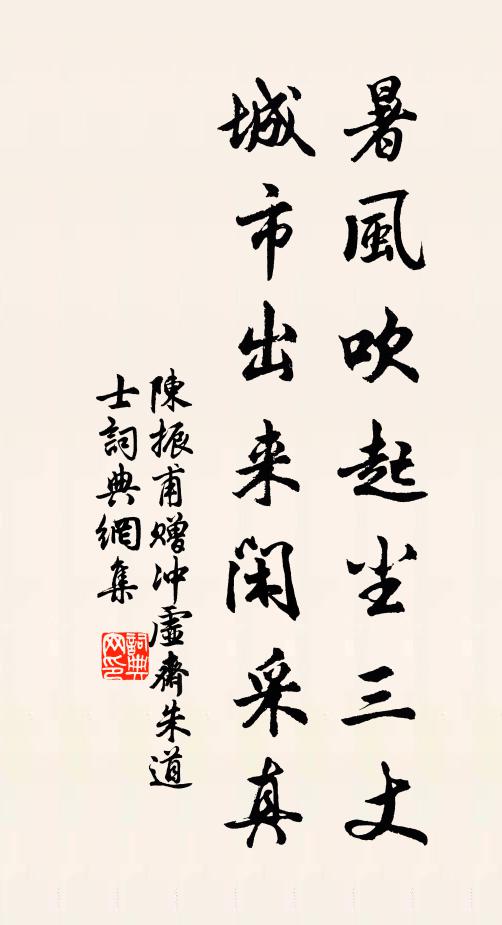 暑風吹起尘三丈
城市出来闲采真
陳振甫赠冲虚齋朱道
士詞典網集
詞典网印